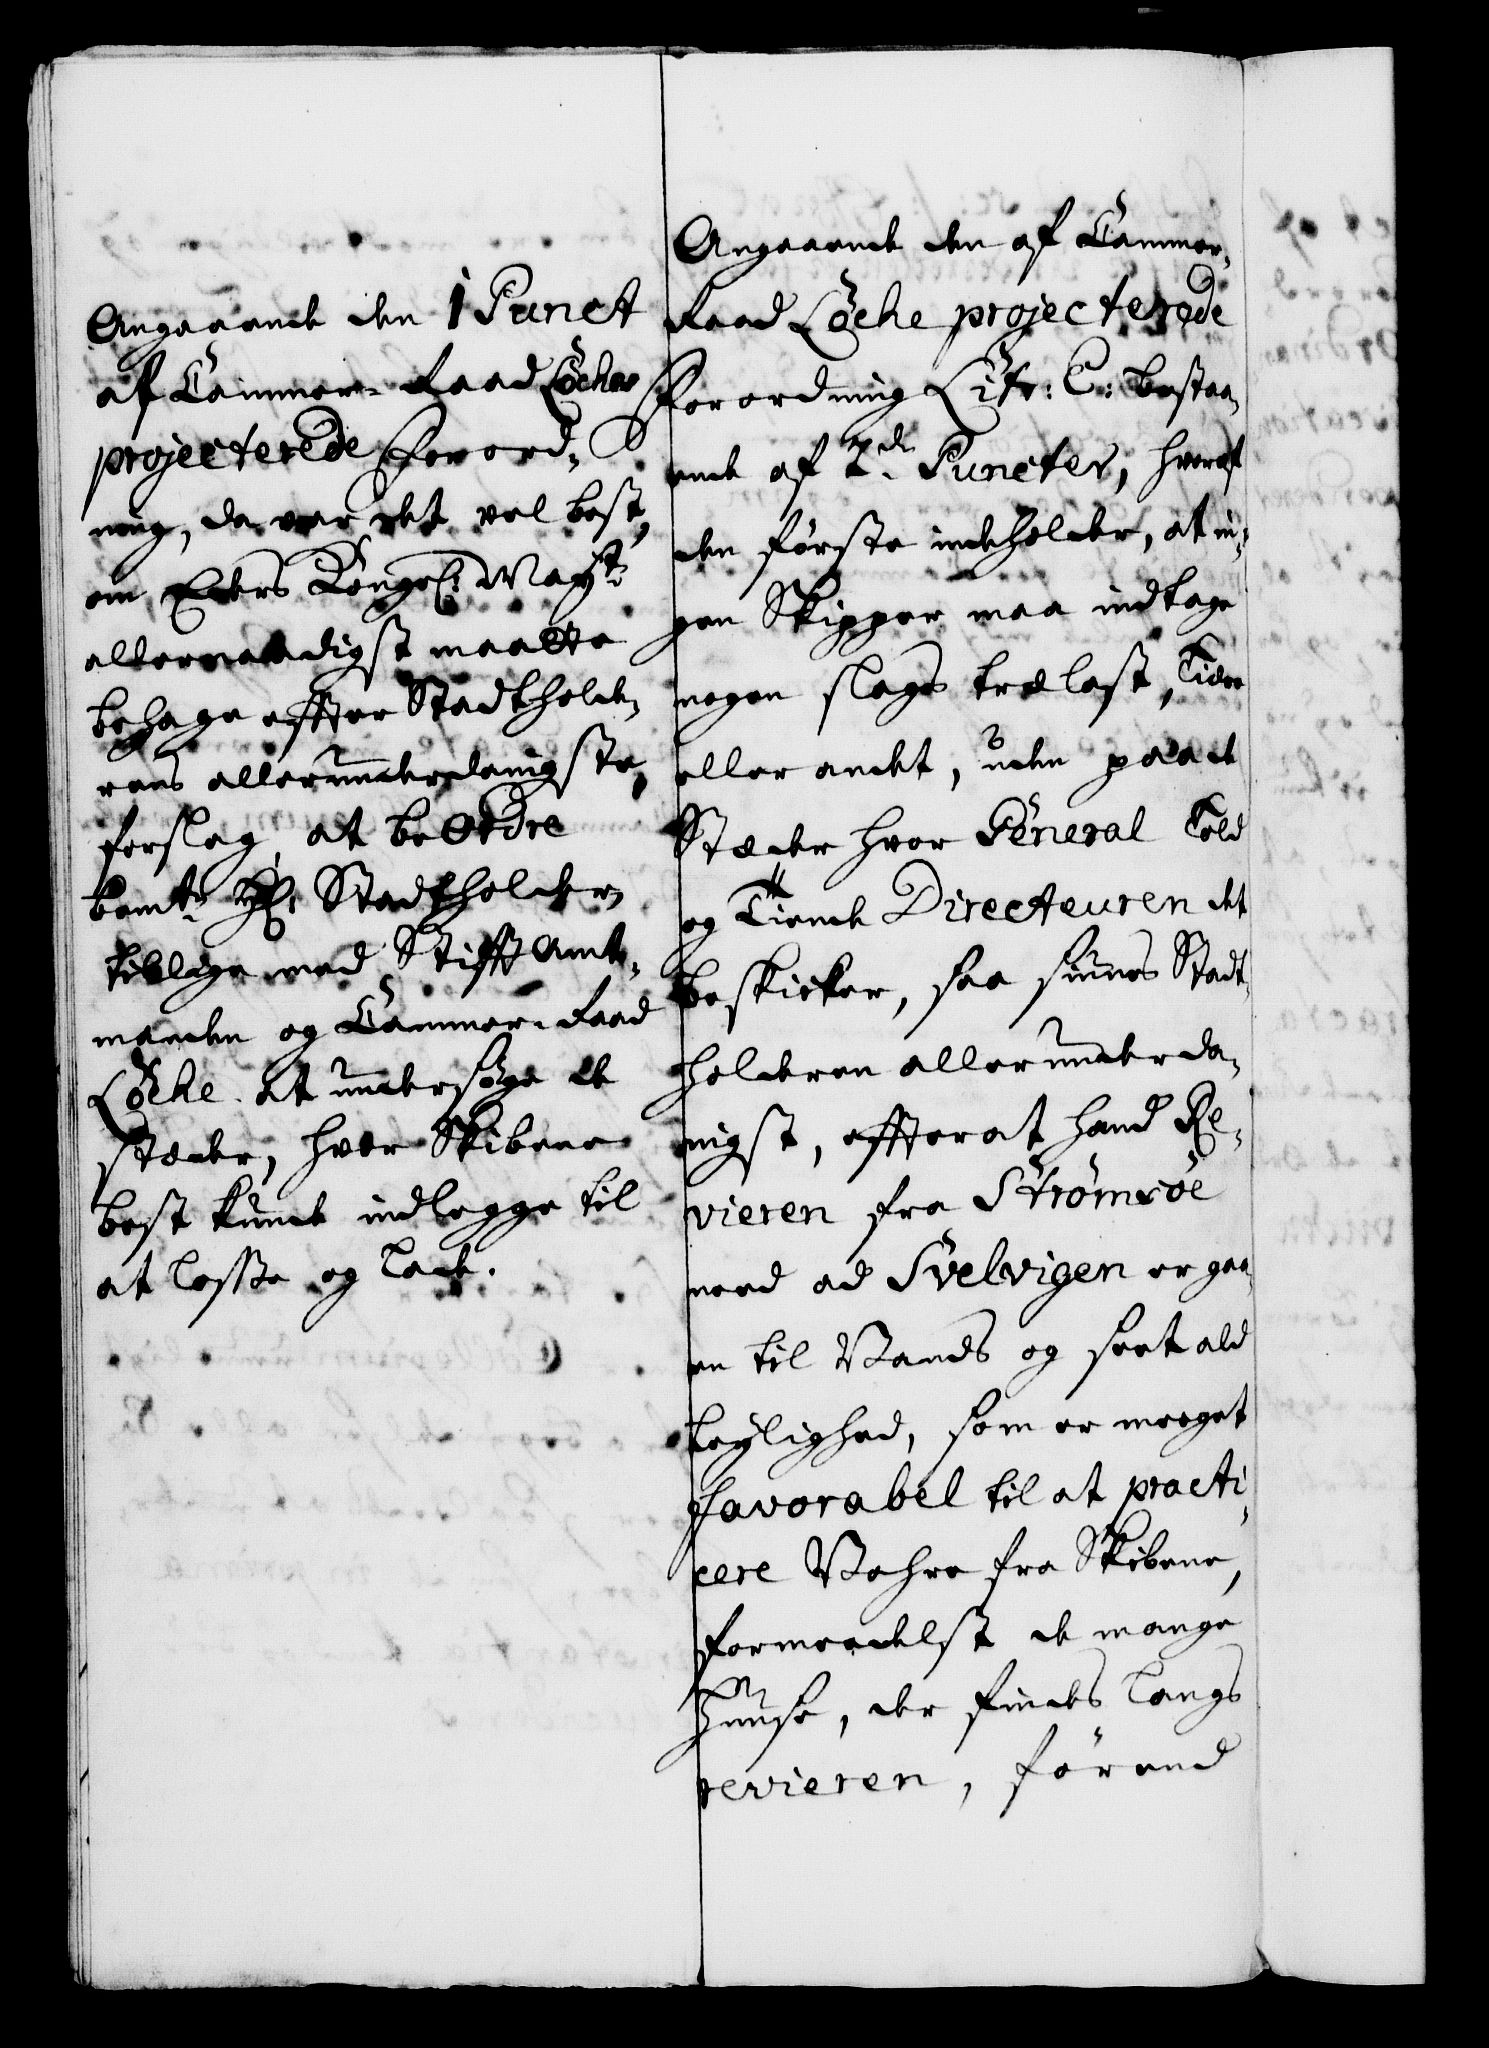 Angaaende den 1 Punct
af Cammer-Raad Löches
projecterede Forord-
ning, da var det vel best,
om Eders Kongel: May:ts
allernaadigst maatte
behage effter Stadtholde-
rens allerunderdanigste
forslag, at beOrdre
bemte Hr: Stadtholder,
tillige med StifftAmt-
manden og Cammer-Raad
Löche at undersøge de
stæder, hvor Skibene
best kunde indlegge til
at losse og lade.
Angaaende den af Cammer-
Raad Löche projecterede
Forordning Litr: C: bestaa-
ende af 2de Puncter, hvoraf
den første indeholder, at in-
gen Skipper maa indtage
nogen slags trælast, Tiære
eller andet, uden paa de
Stæder hvor General Told
og Tiende Directeuren det
beskicker, saa finnes Stadt-
holderen allerunderda-
nigst, effterat hand Re-
vieren fra Strömsöe
need ad Svelvigen er gaa-
en til Vands og seet ald
leylighed, som er meeget
favorabel til at practi-
cere Vahre fra Skibene,
formedelst de mange
Huuse, der findes langs
revieren, förend